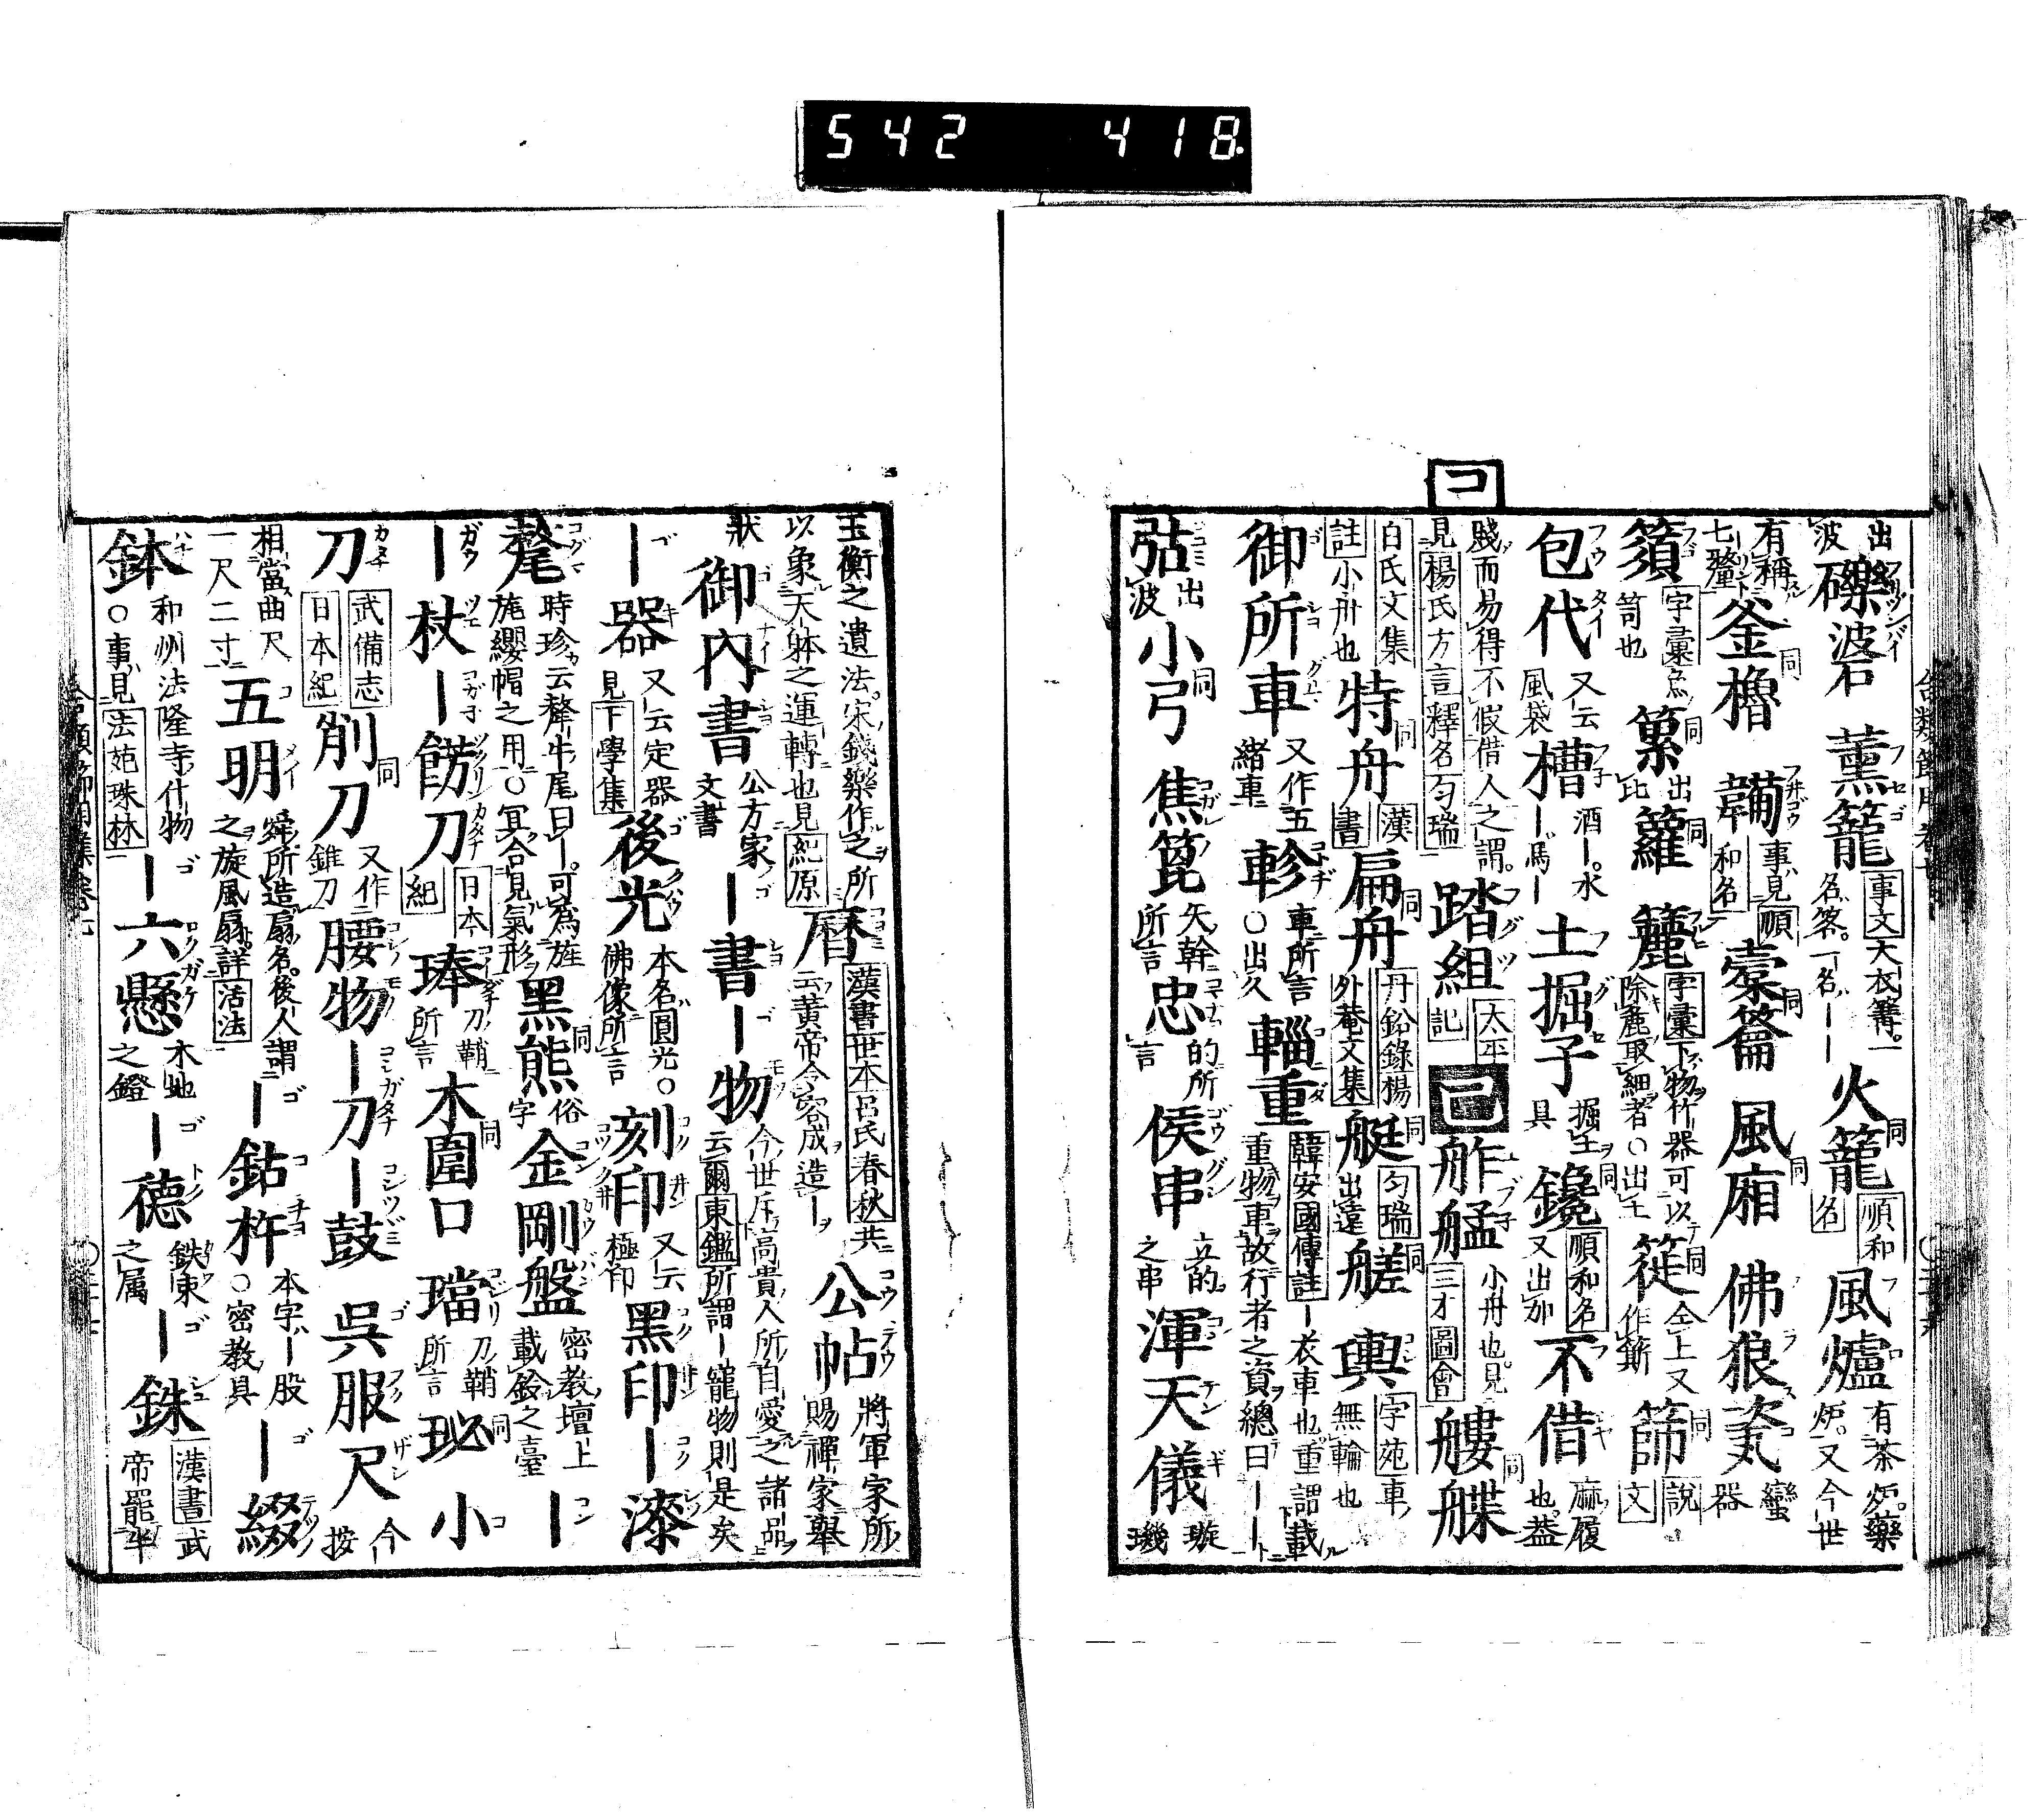 542 418.
コ
出波礫礬石 薫籠 事文大衣篝。一名客。一名ーー 火籠 同 順和名 風爐 有茶炉。藥炉。又今世
有稱七釐 釜櫓 同 鞴 事見順和名 橐籥 同 風廂 同 佛狼 蠻器
籅 字彙 笥也 籅 同 出比 籮 同 簏 字彙下物竹器可以除麁取細者○出土 簁 同 仝上又作簛 篩 同 說文
包代 又云風袋 槽 酒ー。水ー。馬ー 土掘子 掘土具 鑱 同 順和名又出加 不借 麻履也。蓋
賤而易得不假借人之謂。見楊氏方言釋名匀瑞 踏組 太平記 己 舴艋 小舟也。見三才圖會 艛艓 同
白氏文集註小舟也 特舟 同 漢書 扁舟 同 丹鉛錄楊外菴文集 艇 同 匀瑞出遠 艖 同 輿 字苑車無輪也
御所車 又作五緒車 軫 車所言○出久 輜重 韓安國傳註ー衣車也。重謂載重物車。故行者之資總曰ーー
弶 出波 小弓 同 焦箆 矢幹所言 忠 的所言 侯串 立的之串 渾天儀 璇璣
玉衡之遺法。宋錢樂作之所以象天躰之運轉也見紀原 曆 漢書世本呂氏春秋共云黃帝令容成造ー 公帖 將軍家所賜禪家擧
狀 御內書 公方家文書 ー書 ー物 今世斥高貴人所自愛之諸品云爾東鑑所謂ー寵物則是矣
ー器 又云定器見下學集 後光 本名圓光○佛像所言 刻印 又云極印 黑印 ー漆
氂 時珍云犛牛尾曰ー。可為旌旄纓帽之用○冥合見氣形 黑熊 同 俗字 金剛盤 密教壇上載鈴之臺 ー
ー杖 ー餝刀 日本紀 琫 刀鞘所言 木圍口 同 璫 刀鞘所言 珌 同 小
刀 武備志日本紀 削刀 同 又作錐刀 腰物 ー刀 ー鼓 吳服尺 今按
相當曲尺一尺二寸 五明 舜所造扇名。後人謂之旋風扇。詳活法 ー鈷杵 本字ー股○密教具 ー綴
鉢 和州法隆寺什物○事見法苑珠林 ー六懸 木地之鐙 ー德 鉄東之属 ー銖 漢書武帝罷半